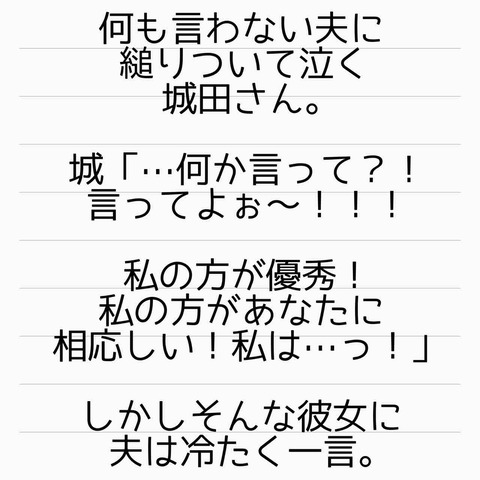 何も言わない夫に
縋りついて泣く
城田さん。
城「…何か言って？！
言ってよぉ～！！！
私の方が優秀！
私の方があなたに
相応しい！私は…っ！」
しかしそんな彼女に
夫は冷たく一言。